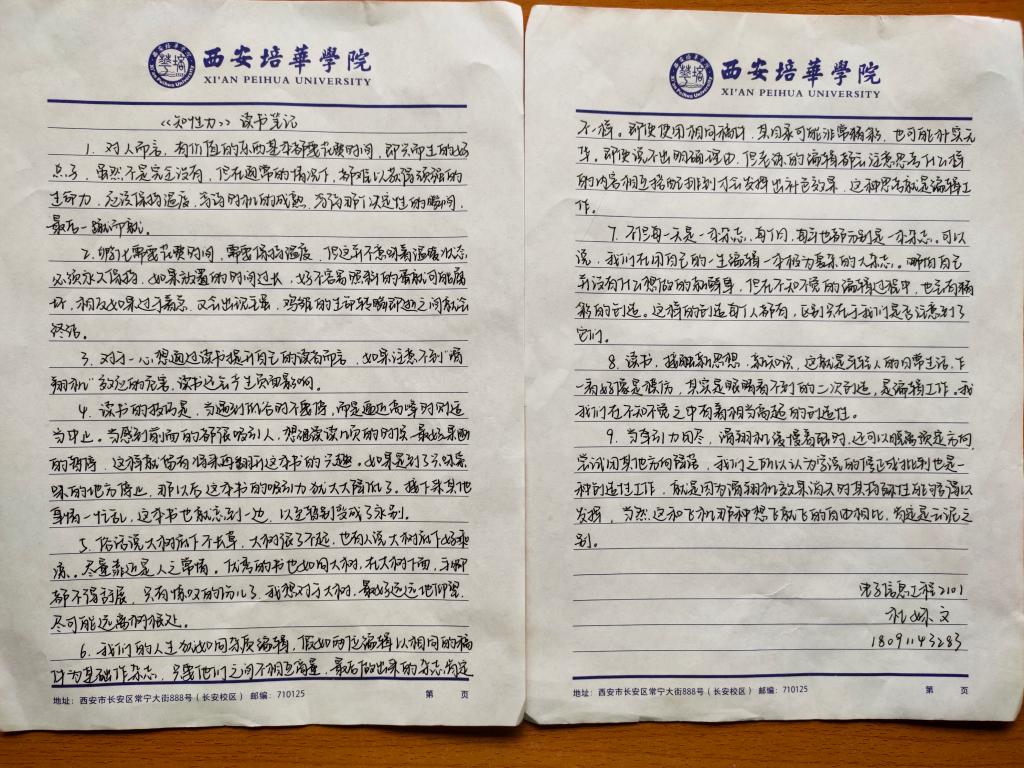 西安培華學院
XI'AN PEIHUA UNIVERSITY
《知性力》读书笔记
1. 对人而言,有价值的东西基本都要花费时间,即兴而生的好
点子,虽然不是完全没有,但在通常的情况下,都难以具备顽强的
生命力,应该保持温度,等待时机的成熟,等待那个决定性的瞬间,
最后一蹴而就。
2. 孵化需要花费时间,需要保持温度,但这并不意味着温暖状态
必须永久保持,如果放置的时间过长,好不容易照料的蛋就可能腐
坏,相反如果过于 又会出现 鸡雏的生命转瞬即逝之间就会
终结。
3. 对于一心想通过读书提升自己的读者而言,如果注意不到“滑
翔机”效应的危害,读书还会产生负面影响。
4. 读书的技巧是,当遇到低谷时不要停,而是逼近高峰时则适
当中止。当感到前面的都很吸引人,想继续读下页的时候,最好果断
的暂停,这样就留有将来再翻开这本书的兴趣。如果是到了兴味索
味的地方停止,那以后这本书的吸引力就大大降低了。接下来其他
事情一忙乱,这本书也就忘到一边,以至暂别变成了永别。
5. 俗话说大树底下不长草,大树底了不起,也有人说大树底下好乘
凉。尽量靠近是人之常情。优秀的书也如同大树,在大树下面,手脚
都不得舒展,只有惊叹的份儿了。我想对于大树,最好远远地仰望,
尽可能远离树根处。
6. 我们的人生就如同杂志编辑,假如两位编辑以相同的稿
件为基础作杂志,只要他们之间不相互商量,最后做出来的杂志肯定
地址:西安市长安区常宁大街888号(长安校区) 邮编:710125 第 页
西安培華學院
XI'AN PEIHUA UNIVERSITY
不一样。即使使用相同稿件,其目录可能非常精彩,也可能朴实无
华。即使说不出明确理由,但老练的编辑都会注意思考什么样
的内容相互搭配排列才会发挥出补色效果,这种思考就是编辑工
作。
7. 不但每一天是一本杂志,每个月,每年也都分别是一本杂志。可以
说,我们在用自己的一生编辑一本极为复杂的大杂志。哪怕自己
并没有什么想做的 但在不知不觉的编辑过程中,也会有精
彩的创造。这样的创造每个人都有,区别只在于我们是否注意到了
它们。
8. 读书,接触新思想,新知识,这就是年轻人的日常生活。乍一
看好像是模仿,其实是眼睛看不到的二次创造,是编辑工作。我
我们在不知不觉之中有着相当高超的创造性。
9. 当牵引力用尽,滑翔机缓慢高度时,还可以 方向
尝试因其他方向 我们之所以认为学说的修正或批判也是一
种创造性工作,就是因为滑翔机效果消失时其独创性能够得以
发挥,当然,这和飞机那种想飞就飞的自由相比,肯定是云泥之
别。
电子信息工程2101
文
18091143283
地址:西安市长安区常宁大街888号(长安校区) 邮编:710125 第 页